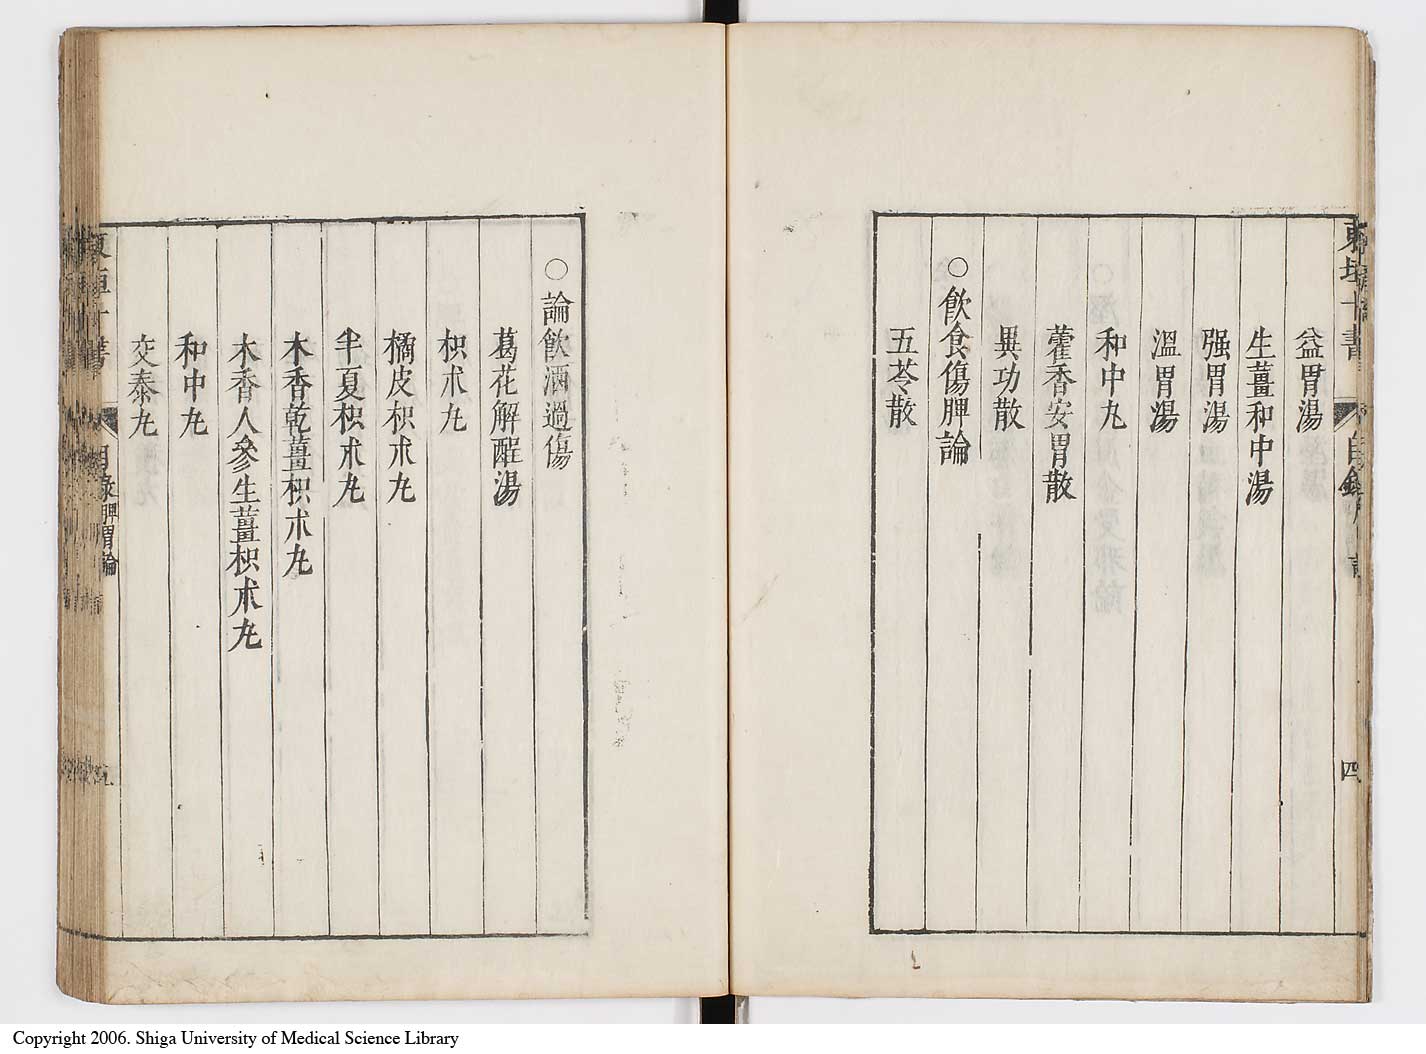 益胃湯
生薑和中湯
强胃湯
溫胃湯
和中丸
藿香安胃散
異功散
○飲食傷脾論
五苓散
東垣十書
目録
四
○論飲酒過傷
葛花解酲湯
枳朮丸
橘皮枳朮丸
半夏枳朮丸
木香乾薑枳朮丸
木香人參生薑枳朮丸
和中丸
交泰丸
東垣十書
目錄脾胃論
五
Copyright 2006. Shiga University of Medical Science Library